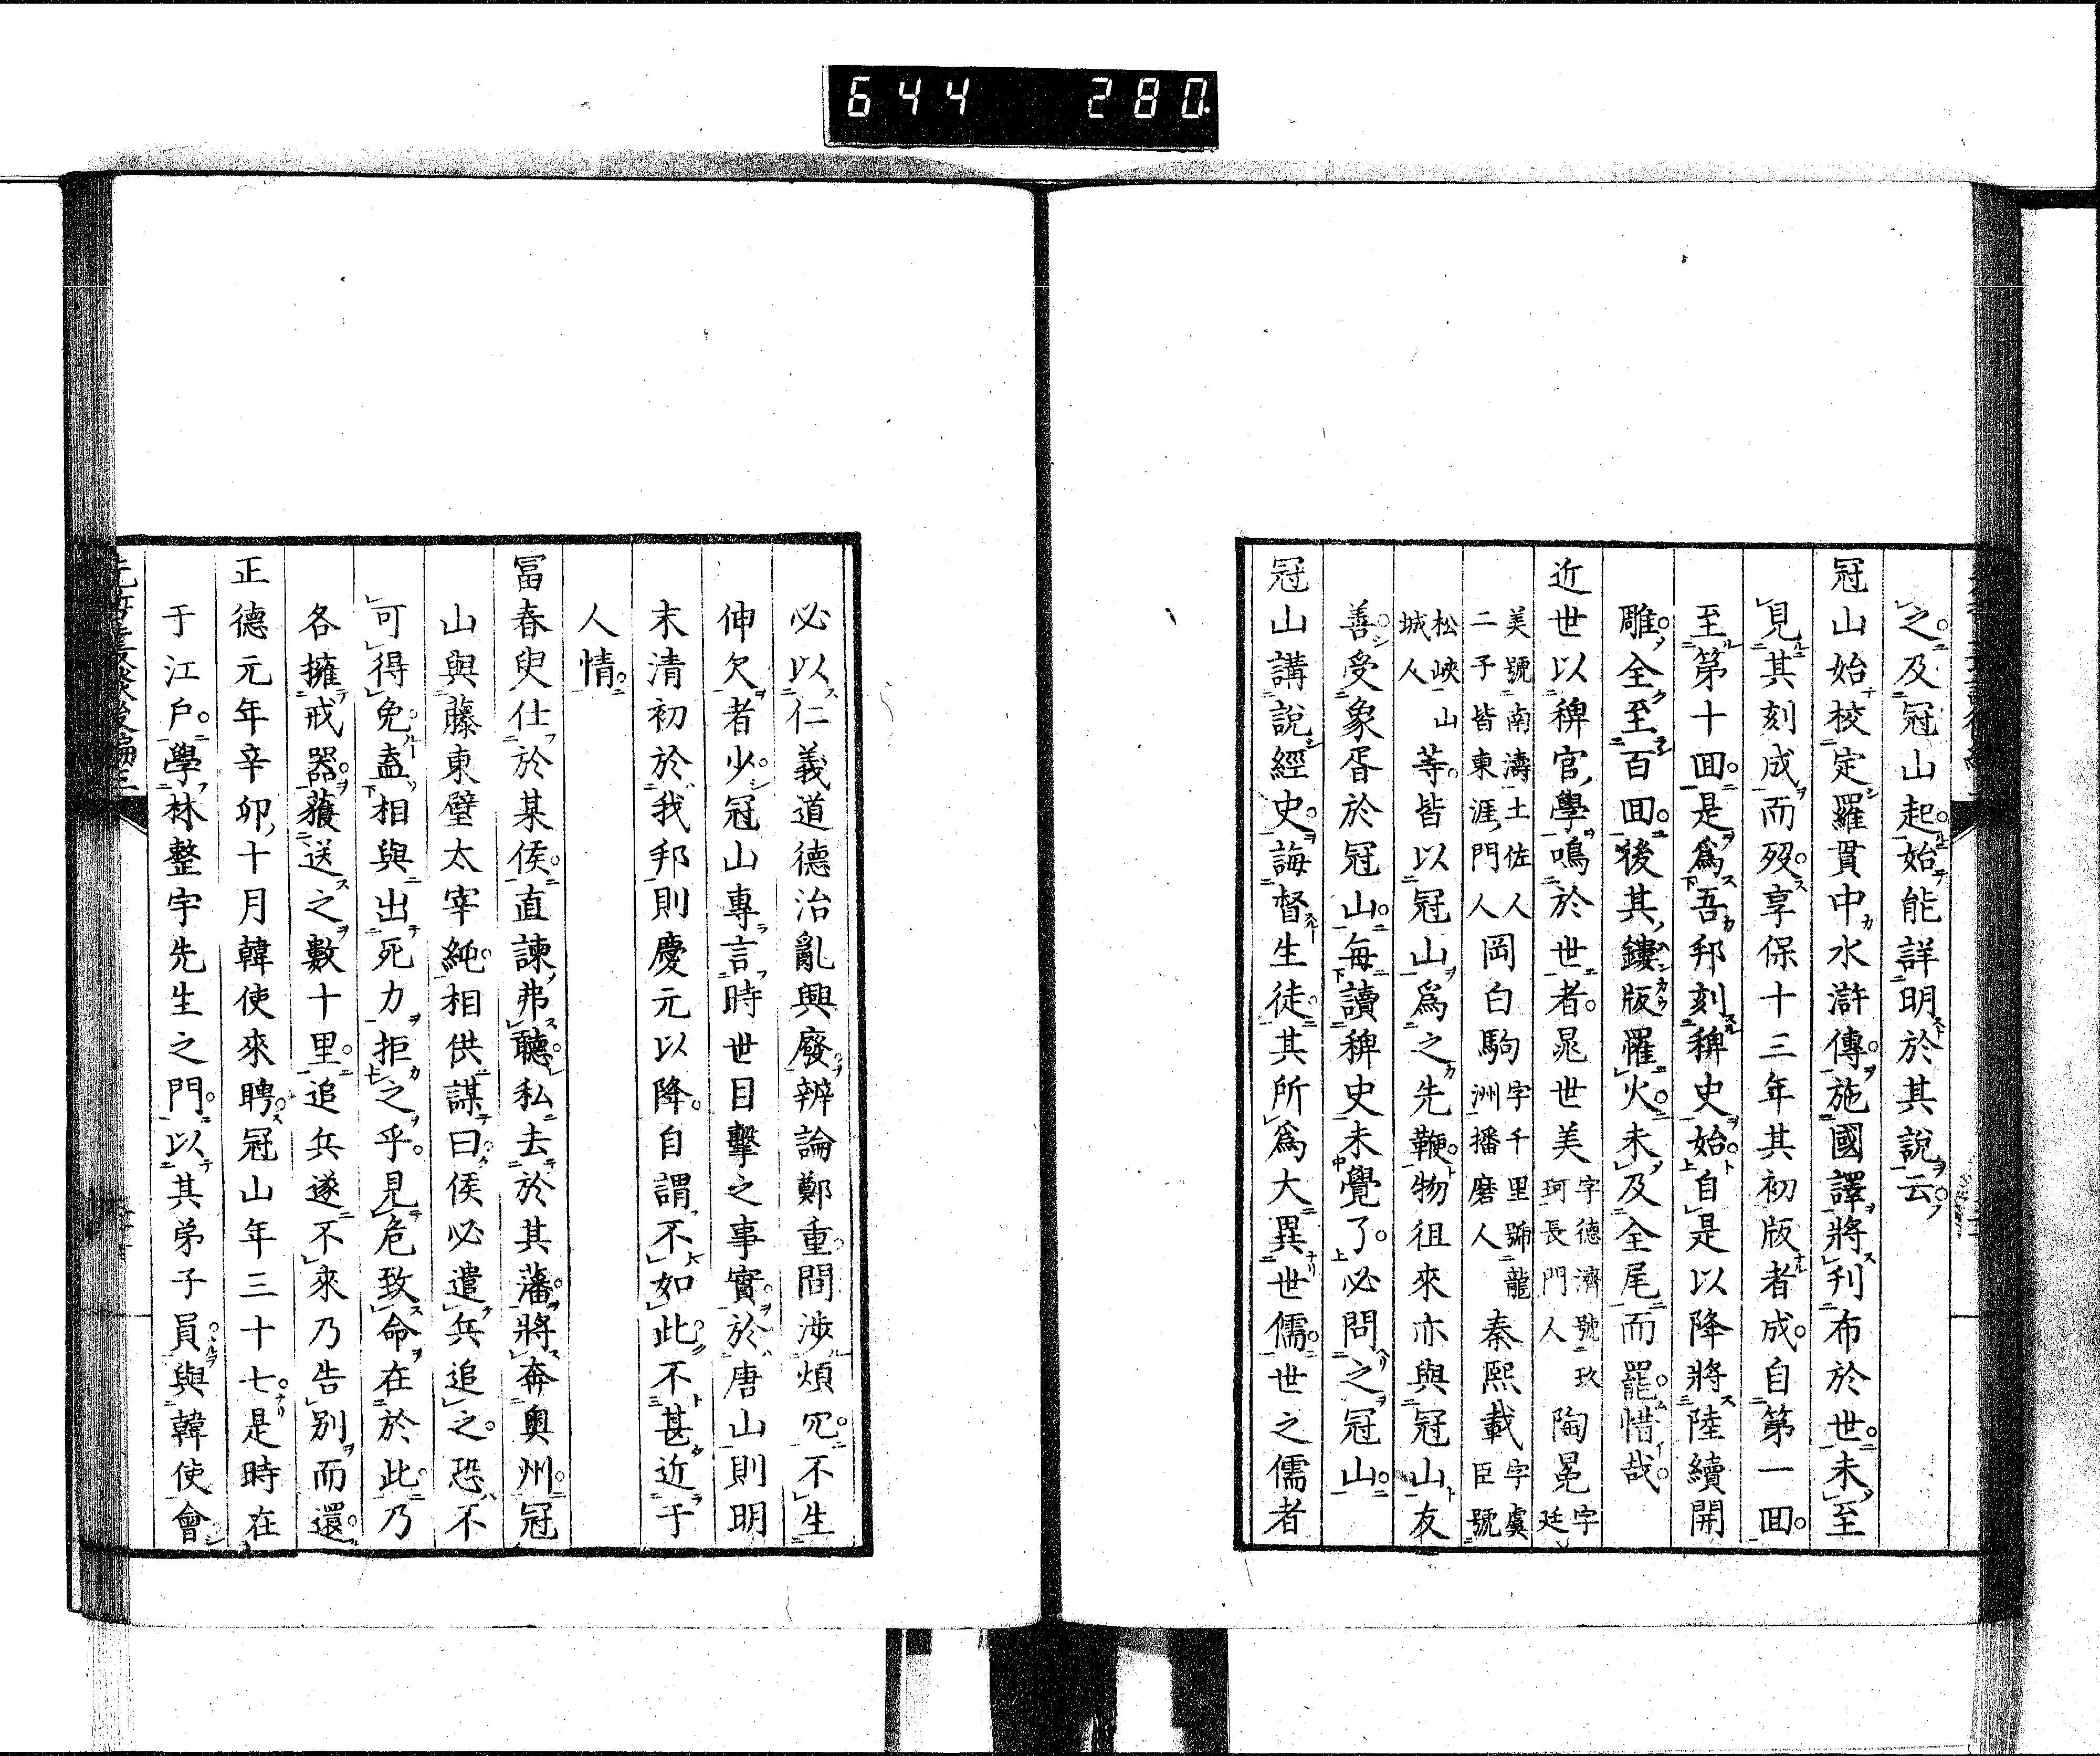 644 280
之及冠山起始能詳明於其說云
冠山始校定羅貫中水滸傳施國譯將刊布於世未至
見其刻成而歿享保十三年其初版者成自第一回
至第十回是爲吾邦刻稗史始自是以降將陸續開
雕全至百回後其鏤版罹火未及全尾而罷惜哉
近世以稗官學鳴於世者晁世美字德濟號玖珂長門人陶冕字廷
美號南濤土佐人二子皆東涯門人岡白駒字千里號龍洲播磨人秦熙載字虞臣號
松峽山城人等皆以冠山爲之先鞭物徂來亦與冠山友
善受象胥於冠山每讀稗史未覺了必問之冠山
冠山講說經史誨督生徒其所爲大異世儒世之儒者
必以仁義道德治亂興廢辨論鄭重間涉煩冗不生
伸欠者少冠山專言時世目擊之事實於唐山則明
末清初於我邦則慶元以降自謂不如此不甚近于
人情
富春叟仕於某侯直諫弗聽私去於其藩將奔奧州冠
山與藤東璧太宰純相供謀曰侯必遣兵追之恐不
可得免盍相與出死力拒之乎見危致命在於此乃
各擁戒器護送之數十里追兵遂不來乃告別而還
正德元年辛卯十月韓使來聘冠山年三十七是時在
于江戶學林整宇先生之門以其弟子員與韓使會